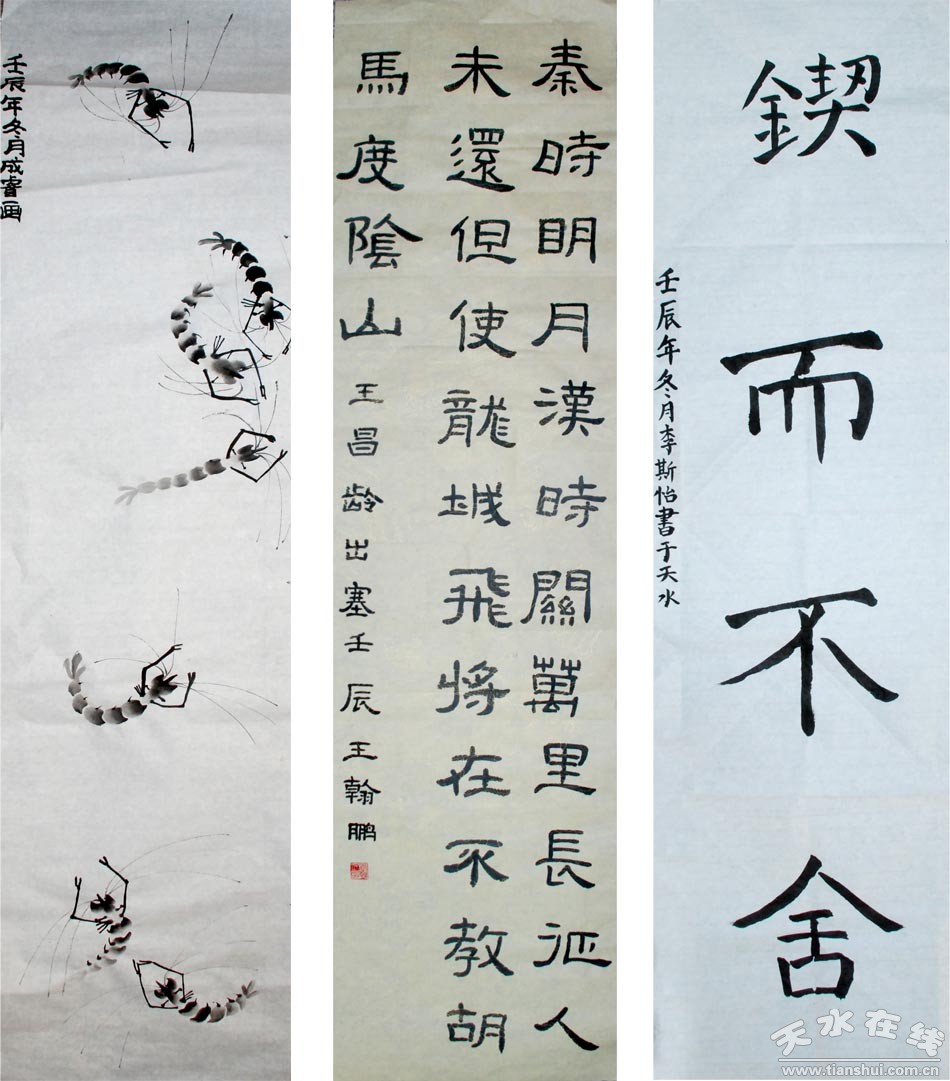 壬辰年冬月成睿画
秦時眀月漢時關萬里長征人
未還但使龍城飛將在不教胡
馬度陰山 王昌龄出塞壬辰王翰鹏
鍥而不舍
壬辰年冬月李斯怡書于天水
天水在线
www.tianshui.com.cn